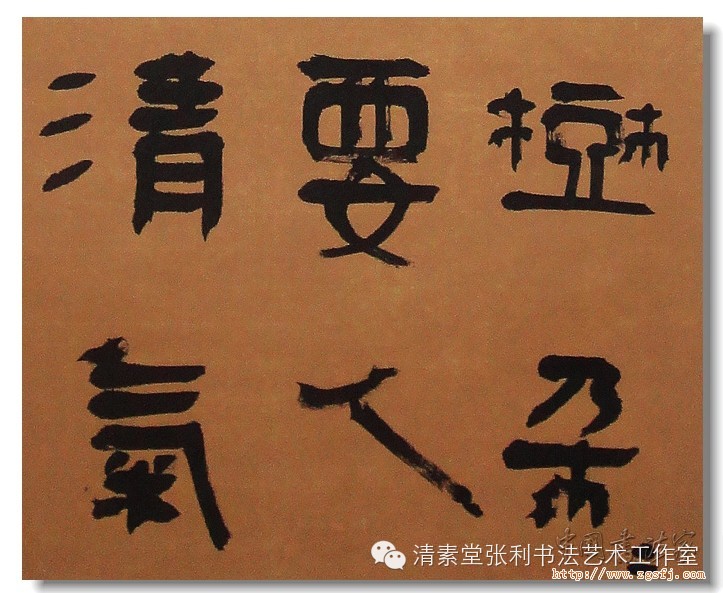 朵
要人
清氣
中国书法家
清素堂张利书法艺术工作室
http://www.zgsfj.com